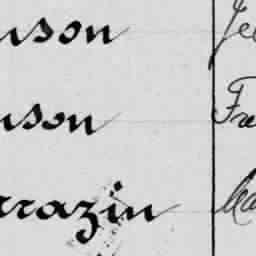 nson Je
nson Fra
rrazin Ma